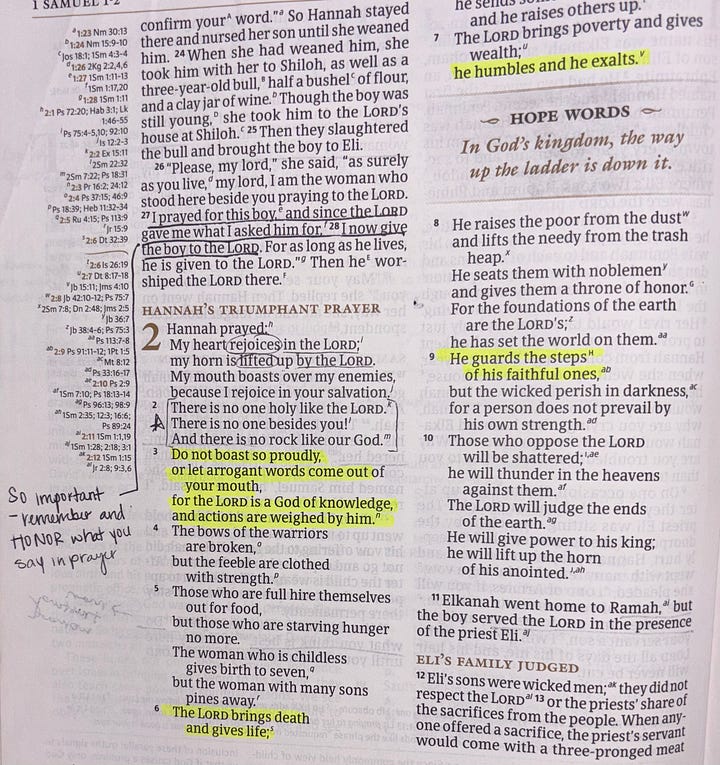 1 SAMUEL 1-2
a1:23 Nm 30:13
b1:24 Nm 15:9-10
cJos 18:1; 1Sm 4:3-4
d1:26 2Kg 2:2,4,6
e1:27 1Sm 1:11-13
f1Sm 1:17,20
g1:28 1Sm 1:11
h2:1 Ps 72:20; Hab 3:1; Lk
1:46-55
iPs 75:4-5,10; 92:10
jIs 12:2-3
k2:2 Ex 15:11
l2Sm 22:32
m2Sm 7:22; Ps 18:31
n2:3 Pr 16:2; 24:12
o2:4 Ps 37:15; 46:9
pPs 18:39; Heb 11:32-34
q2:5 Ru 4:15; Ps 113:9
rJr 15:9
s2:6 Dt 32:39
t2:6 Is 26:19
u2:7 Dt 8:17-18
vJb 15:11; Jms 4:10
w2:8 Jb 42:10-12; Ps 75:7
x2Sm 7:8; Dn 2:48; Jms 2:5
yJb 36:7
zJb 38:4-6; Ps 75:3
aaPs 113:7-8
ab2:9 Ps 91:11-12; 1Pt 1:5
acMt 8:12
adPs 33:16-17
ae2:10 Ps 2:9
af1Sm 7:10; Ps 18:13-14
agPs 96:13; 98:9
ah1Sm 2:35; 12:3; 16:6;
Ps 89:24
ai2:11 1Sm 1:1,19
aj1Sm 1:28; 2:18; 3:1
ak2:12 1Sm 1:15
alJr 2:8; 9:3,6
So important
- remember and
HONOR what you
say in prayer
confirm yourA word."a So Hannah stayed
there and nursed her son until she weaned
him. 24 When she had weaned him, she
took him with her to Shiloh, as well as a
three-year-old bull,B half a bushelC of flour,
and a clay jar of wine.b Though the boy was
still young,D she took him to the LORD's
house at Shiloh.c 25 Then they slaughtered
the bull and brought the boy to Eli.
26 "Please, my lord," she said, "as surely
as you live,d my lord, I am the woman who
stood here beside you praying to the LORD.
27 I prayed for this boy,e and since the LORD
gave me what I asked him for,f 28 I now give
the boy to the LORD. For as long as he lives,
he is given to the LORD."g Then heE wor-
shiped the LORD there.F
HANNAH'S TRIUMPHANT PRAYER
2 Hannah prayed:h
My heart rejoices in the LORD;
my horn is lifted up by the LORD.i
My mouth boasts over my enemies,
because I rejoice in your salvation.j
2 There is no one holy like the LORD.k
There is no one besides you!l
And there is no rock like our God.m
3 Do not boast so proudly,
or let arrogant words come out of
your mouth,
for the LORD is a God of knowledge,
and actions are weighed by him.n
4 The bows of the warriors
are broken,o
but the feeble are clothed
with strength.p
5 Those who are full hire themselves
out for food,
but those who are starving hunger
no more.
The woman who is childless
gives birth to seven,q
but the woman with many sons
pines away.r
6 The LORD brings death
and gives life;s
he sends some
and he raises others up.t
7 The LORD brings poverty and gives
wealth;u
he humbles and he exalts.v
HOPE WORDS
In God's kingdom, the way
up the ladder is down it.
8 He raises the poor from the dustw
and lifts the needy from the trash
heap.x
He seats them with noblemeny
and gives them a throne of honor.G
For the foundations of the earth
are the LORD's;z
he has set the world on them.aa
9 He guards the stepsH
of his faithful ones,ab
but the wicked perish in darkness,ac
for a person does not prevail by
his own strength.ad
10 Those who oppose the LORD
will be shattered;I,ae
he will thunder in the heavens
against them.af
The LORD will judge the ends
of the earth.ag
He will give power to his king;
he will lift up the horn
of his anointed.J,ah
11 Elkanah went home to Ramah,ai but
the boy served the LORD in the presence
of the priest Eli.aj
ELI'S FAMILY JUDGED
12 Eli's sons were wicked men;ak they did not
respect the LORDal 13 or the priests' share of
the sacrifices from the people. When any-
one offered a sacrifice, the priest's servant
would come with a three-pronged meat